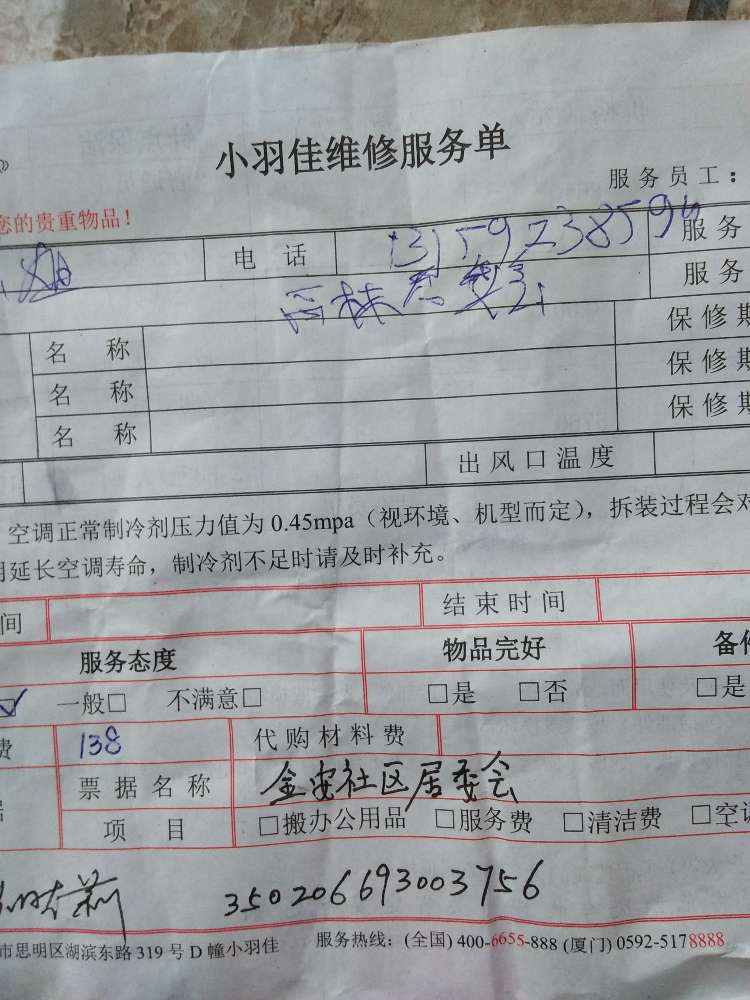 小羽佳维修服务单
服务员工：
您的贵重物品！
电 话 13159238594 服务
服务
名 称 保修期
名 称 保修期
名 称 保修期
出风口温度
空调正常制冷剂压力值为 0.45mpa（视环境、机型而定），拆装过程会对
延长空调寿命，制冷剂不足时请及时补充。
间 结束时间
服务态度 物品完好 备件
一般□ 不满意□ □是 □否 □是
费 138 代购材料费
票据名称 金安社区居委会
项 目 □搬办公用品 □服务费 □清洁费 □空调
350206693003756
市思明区湖滨东路 319 号 D 幢小羽佳 服务热线：(全国) 400-6655-888 (厦门) 0592-5178888